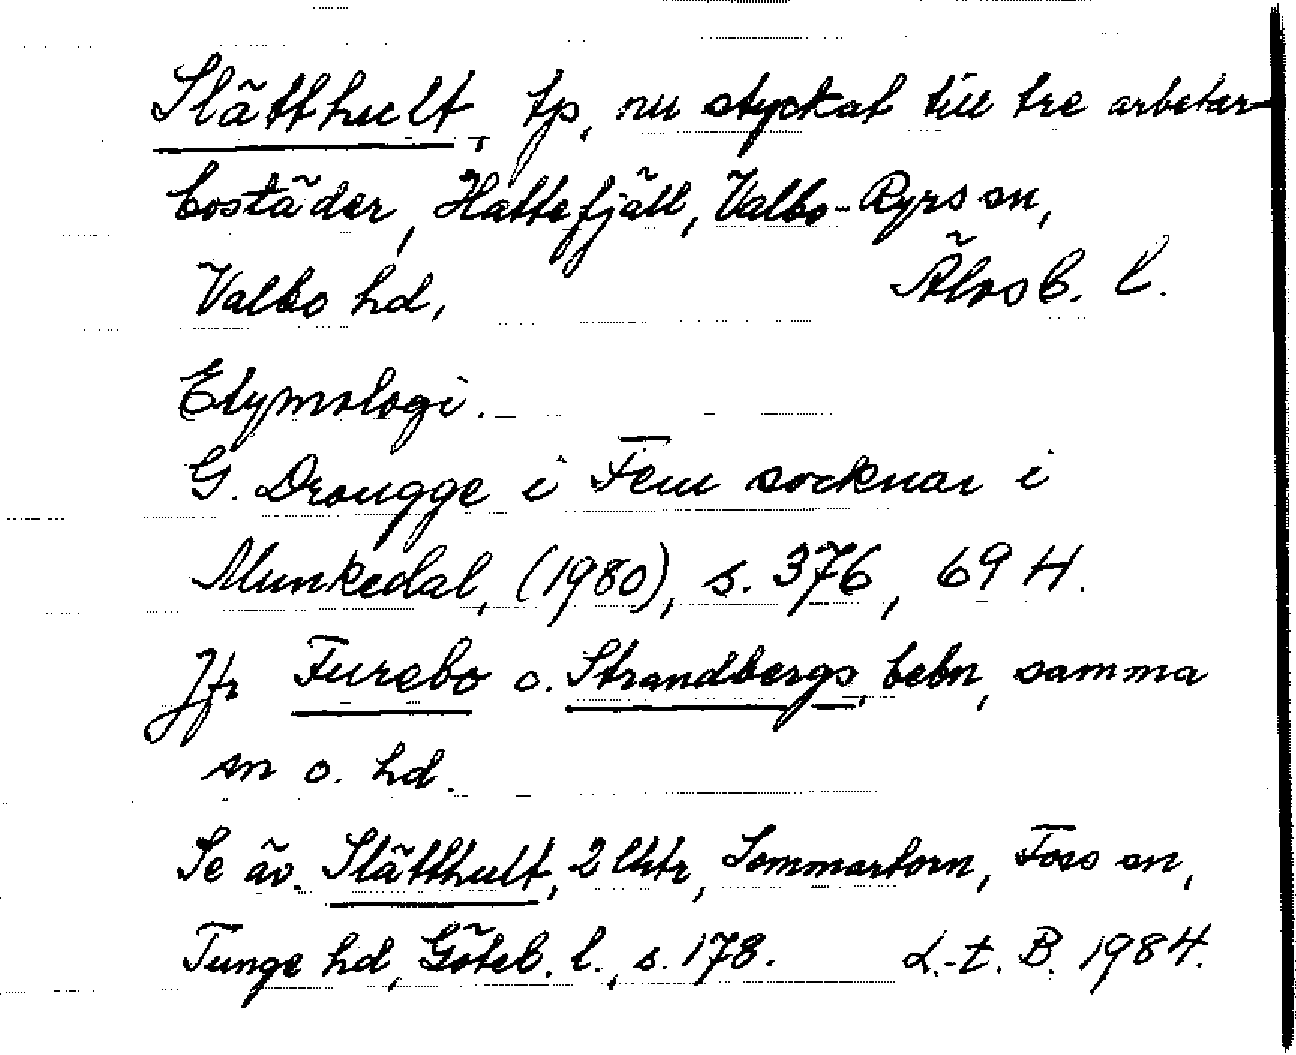 Slätthult, tp, nu styckat till tre arbetar-
bostäder, Hättefjäll, Valbo-Ryrs sn,
Valbo hd, Älvsb. l.
Etymologi.
G. Drougge i Fem socknar i
Munkedal, (1980), s. 376, 694.
Jfr Furebo o. Strandbergs, bebn, samma
sn o. hd.
Se äv. Slätthult, 2 lhtr, Sommartorn, Foss sn,
Tunge hd, Göteb. l., s. 178. L.-t. B. 1984.